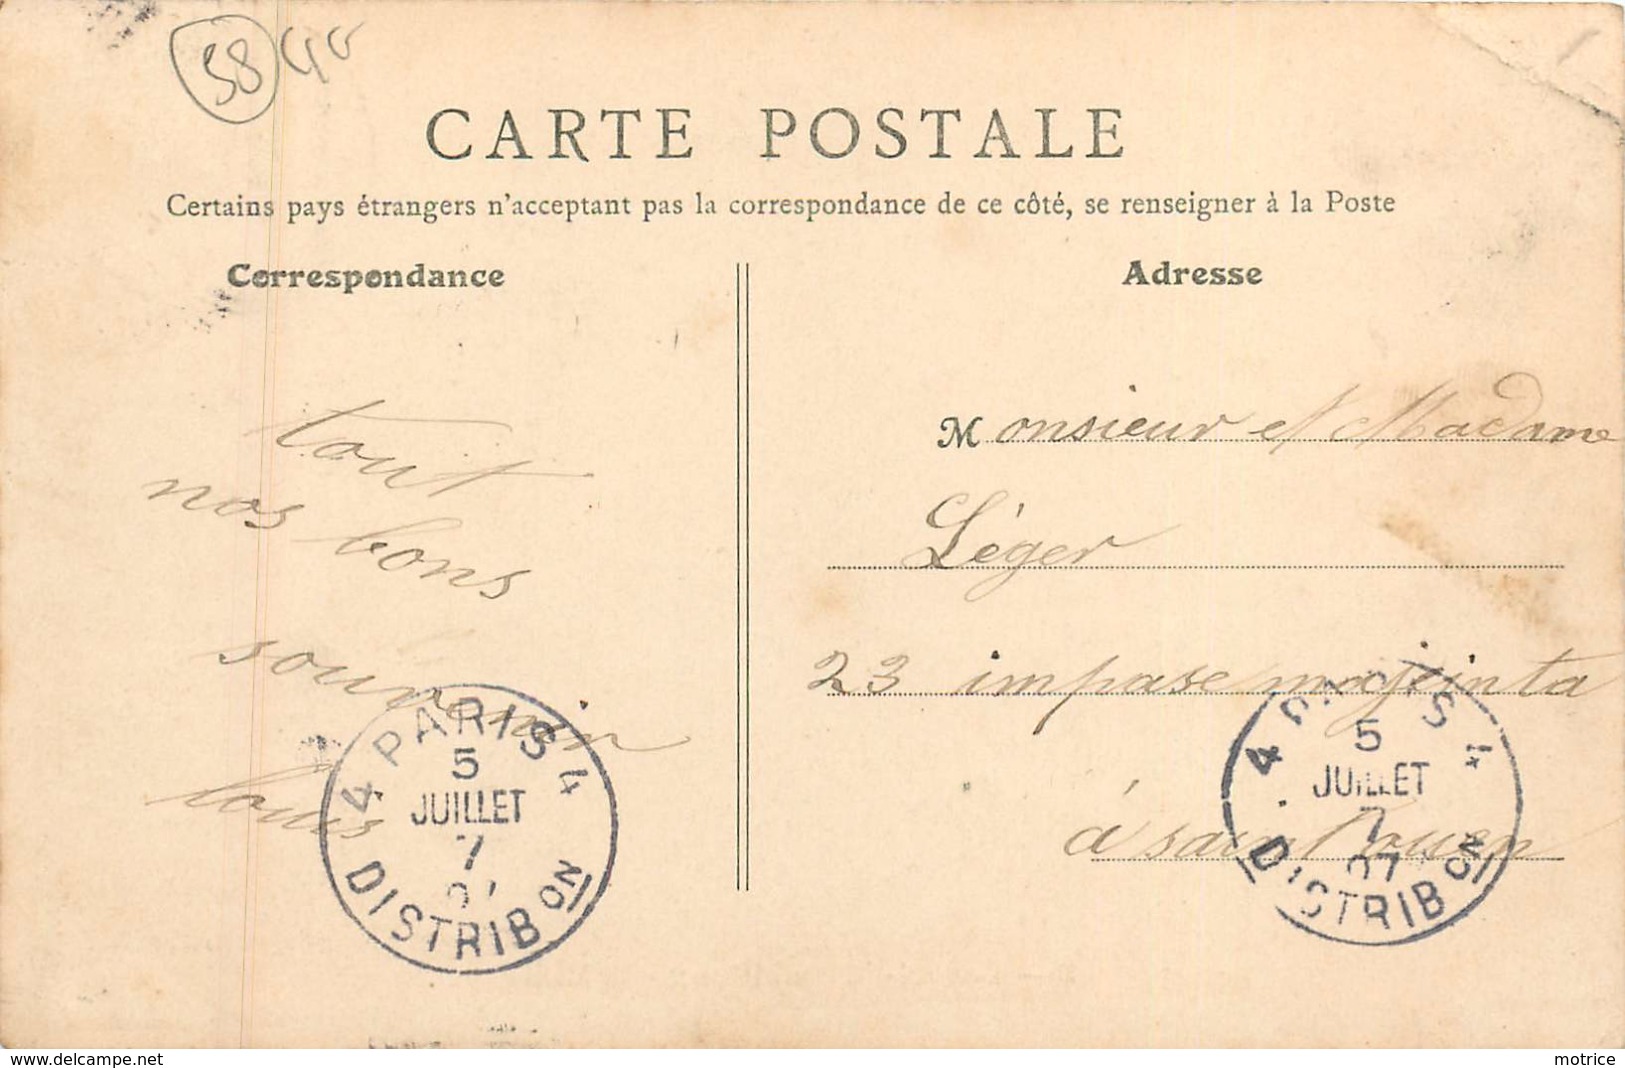 58 4v
CARTE POSTALE
Certains pays étrangers n'acceptant pas la correspondance de ce côté, se renseigner à la Poste
Correspondance
tout
nos bons
souvenin
louis
Adresse
Monsieur et Madame
Léger
23 impase majinta
á saint ouen
4 PARIS 4
5
JUILLET
7
07
DISTRIBON
4 PARIS 4
5
JUILLET
7
07
DISTRIBON
www.delcampe.net
motrice